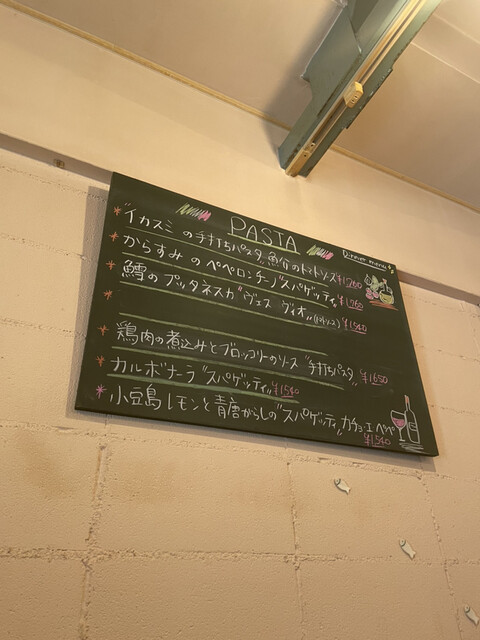 PASTA
Dinner menu's
イカスミの手打ちパスタ"魚介のトマトソース" ¥1760
からすみのペペロンチーノ"スパゲッティ" ¥1760
鱈のプッタネスカ"ヴェスヴィオ" ¥1540
鶏肉の煮込みとブロッコリーのソース "手打ちパスタ" ¥1650
カルボナーラ"スパゲッティ" ¥1540
小豆島レモンと青唐がらしの"スパゲッティ" カチョ・エ・ペペ
¥1540